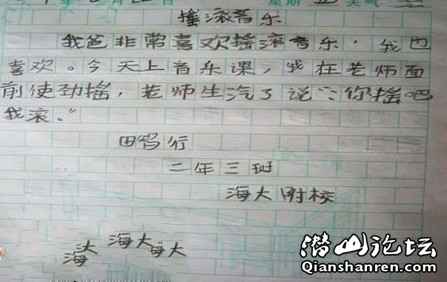 星期
摇滚音乐
我爸非常喜欢摇滚音乐，我也
喜欢。今天上音乐课，我在老师面
前使劲摇，老师生汽了说：“你摇吧
我滚。”
二年三班
海大附校
海大 海大 海大
潜山论坛
Qianshanren.com